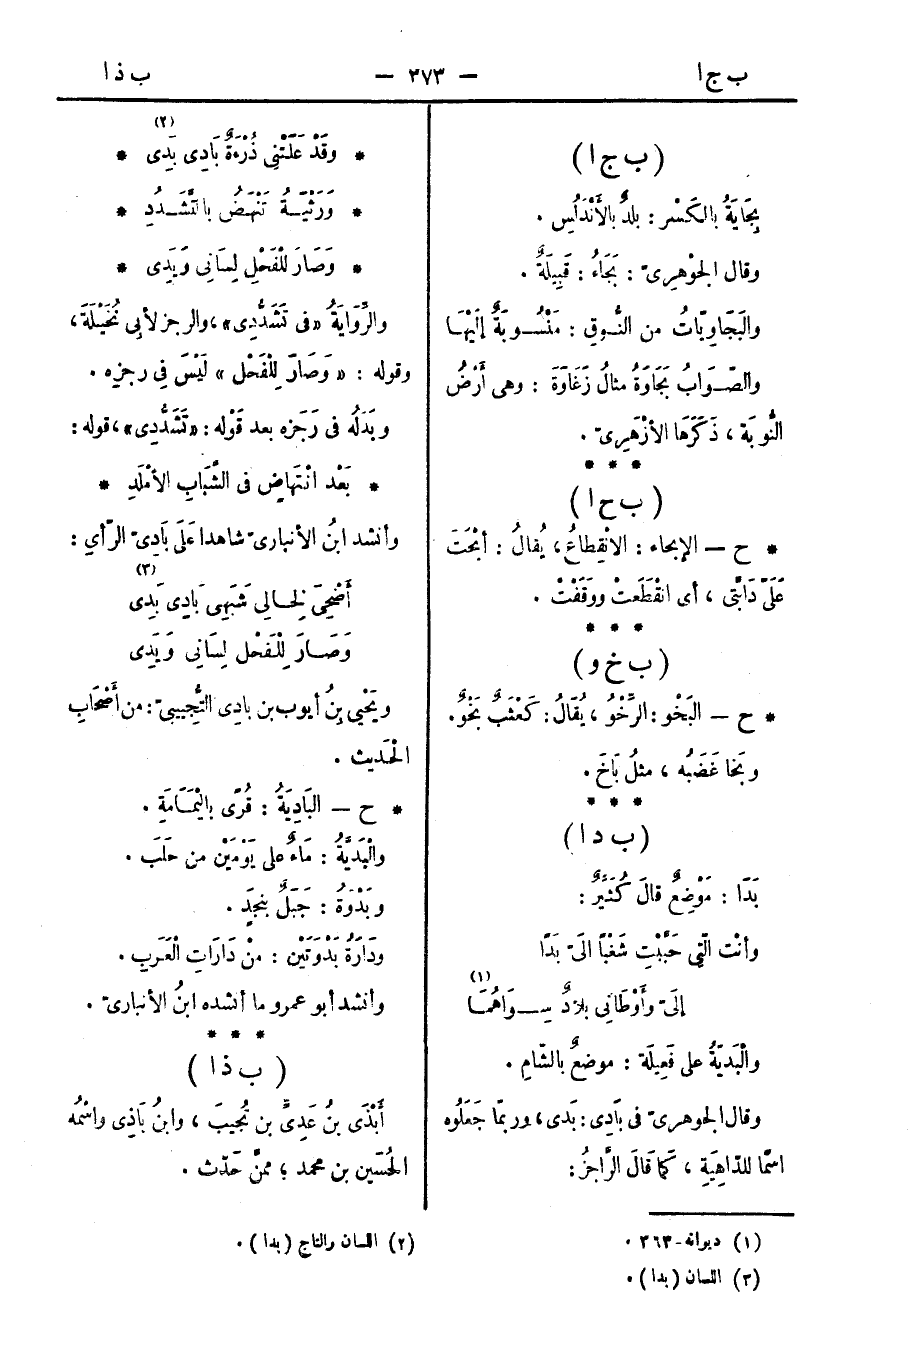 ب ج ا
— ٣٧٣ —
ب ذ ا
( ب ج ا )
بِجَايَةُ بالكَسْر : بلدٌ بالأَنْدَلُسِ .
وقال الجوْهرِىّ : بَجَاءُ : قَبِيلَةٌ .
والبَجَاوِيّاتُ من النُّوقِ : مَنْسُوبَةٌ إلَيْهَا
والصَّوَابُ بَجَاوَةُ مثالُ زَغَاوَةَ : وهى أَرْضُ
النُّوبَة ، ذَكَرَهَا الأزْهَرِىّ .
* * *
( ب ح ا )
* ح — الإبحاء : الانْقِطاعُ ، يُقالُ : أبْحَتَ
عَلَىَّ دَابَّتى ، أى انقَطَعتْ ووَقَفَتْ .
* * *
( ب خ و )
* ح — البَخْو : الرَّخْوُ ، يُقَالُ : كَعْثَبٌ بَخْوٌ .
وبَخا غَضَبُه ، مثلُ بَاخَ .
* * *
( ب د ا )
بَدَا : مَوْضِعٌ قالَ كُثَيِّرٌ :
وأنْت الّتِى حَبَّبْتِ شَغْبًا الَىّ بَدًا
إلَىّ وأَوْطَانِى بلادٌ سِوَاهُمَا (١)
والْبَدِيّةُ على فَعِيلَة : موضعٌ بالشّامِ .
وقال الجوهرىّ فى بَادِى : بَدى ، وربمّا جَعَلُوه
اسمًا للدّاهِيَةِ ، كَما قَالَ الرَّاجزُ :
* وقَدْ عَلَتْنِى ذُرْءَةٌ بَادِى بَدِى * (٢)
* وَرَثْيَةٌ تَنْهَضُ بالتَّشَدُدِ *
* وَصَارَ لِلْفَحْلِ لِسَانِى وَيَدِى *
والرِّوَايَةُ «فى تَشَدُّدِى»، والرجز لأبِى نُخَيْلَةَ ،
وقوله : « وَصَارَ لِلْفَحْل » لَيْسَ فى رجزِه .
وبَدَلُه فى رَجَزِه بعد قَوْله : «تَشَدُّدِى» ، قوله :
* بَعْد انْتِهَاضٍ فى الشَّبَابِ الأمْلَدِ *
وأنشد ابنُ الأنبارىّ شاهدا عَلَى بَادِىَ الرّأي :
أَضْحَى لِخالِى شَبَهِى بَادِى بَدِى (٣)
وَصَارَ لِلْفَحْلِ لِسَانِى وَيَدِى
ويَحْيى بنُ أيوب بن بادِى التُّجِيبىّ : من أَصْحَابِ
الْحَدِيث .
* ح — البَادِيَةُ : قُرًى بالْيَمَامَةِ .
والْبَدِيَّةُ : مَاءٌ على يَوْمَيْن من حَلَبَ .
وبَدْوَةُ : جَبَلٌ بنجدٍ .
ودَارَةُ بَدْوَتَيْن : مِنْ دَارَاتِ الْعَرَبِ .
وأنشد أبو عمرو ما أنشده ابنُ الأنبارىّ .
* * *
( ب ذ ا )
أَبْذَى بنُ عَدِىِّ بن تُجِيبَ ، وابنُ بَاذِى واسْمُه
الحُسَين بن محمد ؛ ممنَّ حَدّث .
(١) ديوانه - ٣٦٣ .
(٢) اللسان والتاج (بدا) .
(٣) اللسان (بدا) .